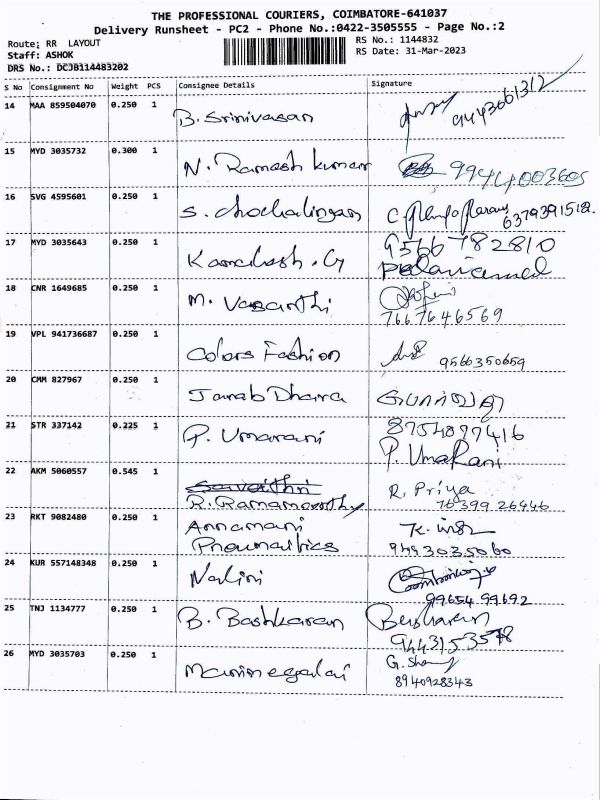 THE PROFESSIONAL COURIERS, COIMBATORE-641037
Delivery Runsheet - PC2 - Phone No.:0422-3505555 - Page No.:2
Route: RR LAYOUT
RS No.: 1144832
Staff: ASHOK
RS Date: 31-Mar-2023
DRS No.: DCJB114483202
S No Consignment No Weight PCS Consignee Details Signature
14 MAA 859504070 0.250 1 B. Srinivasan 9443661312
15 MYD 3035732 0.300 1 N. Ramesh kumar 9944003605
16 SVG 4595601 0.250 1 S. chockalingam 6379391518.
17 MYD 3035643 0.250 1 Kamalesh . G 9566782810
Palaniammal
18 CNR 1649685 0.250 1 M. Vasanthi
7667646569
19 VPL 941736687 0.250 1 Colors Fashion 9566350659
20 CMM 827967 0.250 1 Jainab Dhara
21 STR 337142 0.225 1 P. Umarani 8754097416
P. UmaRani
22 AKM 5060557 0.545 1 Savithri R. Priya
R. Ramamoorthy 76399 26446
23 RKT 9082480 0.250 1 Annamani
Pneumatics 9443035060
24 KUR 557148348 0.250 1 Nalini
99654 99692
25 TNJ 1134777 0.250 1 B. Bashkaran Bashkaran
9443153578
26 MYD 3035703 0.250 1 Manimegalai
8940928343